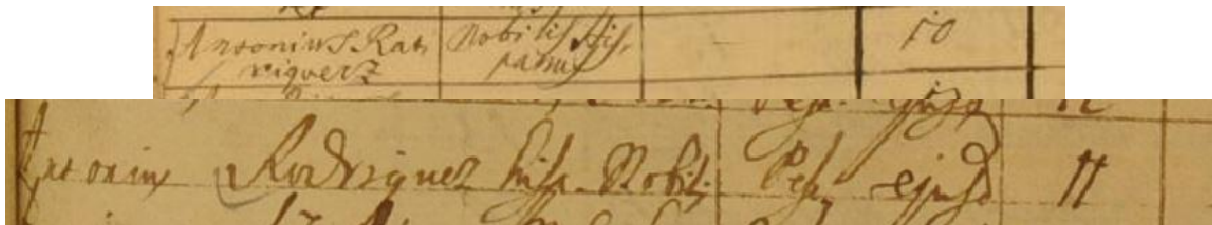 Antonius Rat
riquerz
Nobilis His
panus
10
Antonius Rodriquez hisp. Nobilis Pest. ejusd 11